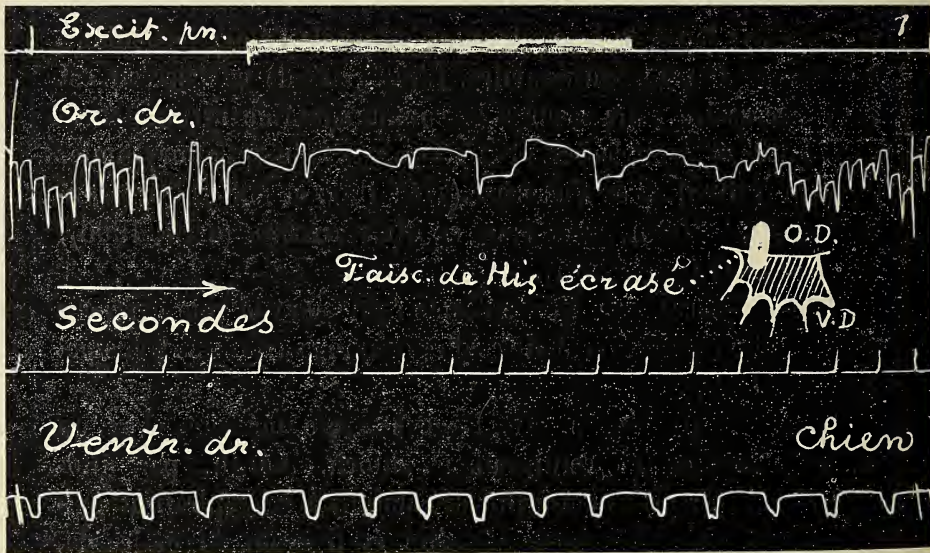 Excit. pn. 1
Or. dr.
O.D.
Faisc. de His écrasé
V.D
Secondes
Ventr. dr. Chien